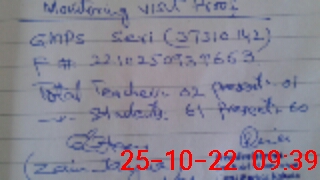 Monitoring visit Proof
GMPS Seri (37310142)
F # 22102509399653
Total Teachers 02 present 01
Students 61 present 60
25-10-22 09:39